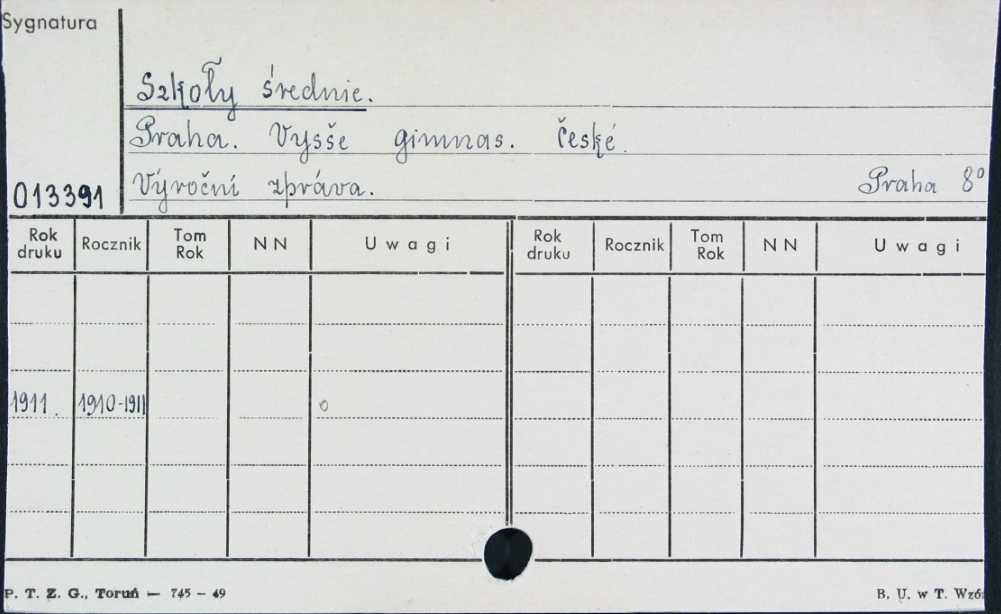 Sygnatura
Szkoły średnie.
Praha. Vysše gimnas. české.
013391 Výroční zpráva. Praha 8°
Rok druku Rocznik Tom Rok NN Uwagi Rok druku Rocznik Tom Rok NN Uwagi
1911. 1910-1911 0
P. T. Z. G., Toruń — 745 — 49 B. U. w T.